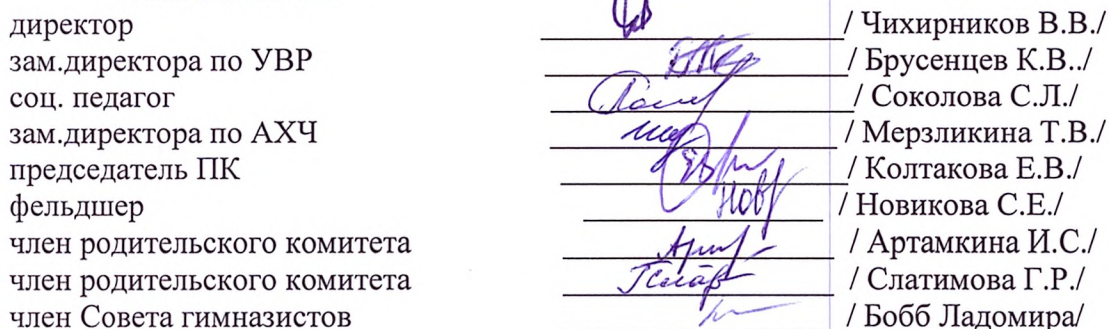 директор / Чихирников В.В./
зам.директора по УВР / Брусенцев К.В../
соц. педагог / Соколова С.Л./
зам.директора по АХЧ / Мерзликина Т.В./
председатель ПК / Колтакова Е.В./
фельдшер / Новикова С.Е./
член родительского комитета / Артамкина И.С./
член родительского комитета / Слатимова Г.Р./
член Совета гимназистов / Бобб Ладомира/